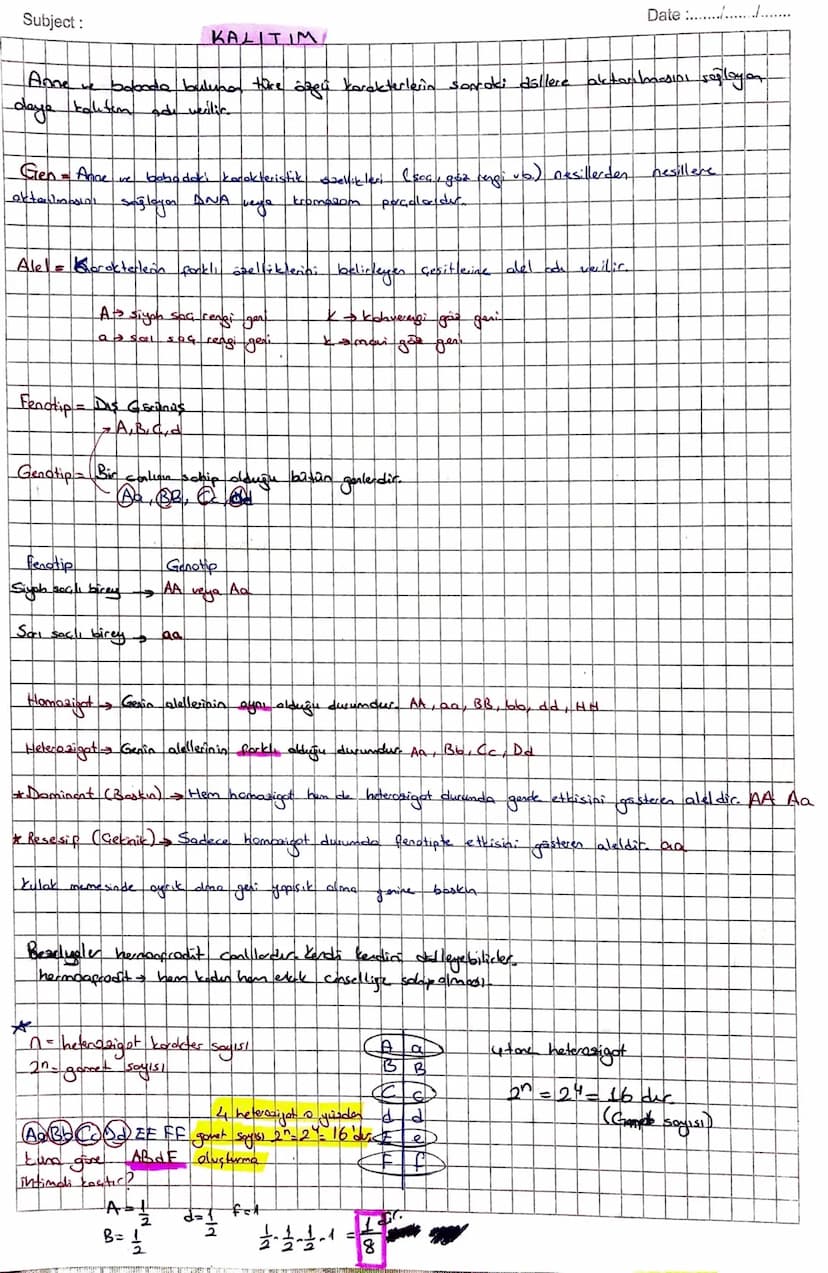 Subject :
Date :......../......../........
KALITIM
Anne ve babada bulunan türe özgü karakterlerin sonraki döllere aktarılmasını sağlayan
olaya kalıtım adı verilir.
Gen = Anne ve babadaki karakteristik özellikleri (saç, göz rengi vb.) nesillerden nesillere
aktarılmasını sağlayan DNA veya kromozom parçalarıdır.
Alel = Karakterlerin farklı özelliklerini belirleyen çeşitlerine alel adı verilir.
A → siyah saç rengi geni K → kahverengi göz geni
a → sarı saç rengi geni k → mavi göz geni
Fenotip = Dış Görünüş
→ A, B, C, d
Genotip = Bir canlının sahip olduğu bütün genlerdir.
Aa, BB, Cc, dd
Fenotip Genotip
Siyah saçlı birey → AA veya Aa
Sarı saçlı birey → aa
Homozigot → Genin alellerinin aynı olduğu durumdur. AA, aa, BB, bb, dd, HH
Heterozigot → Genin alellerinin farklı olduğu durumdur. Aa, Bb, Cc, Dd
* Dominant (Baskın) → Hem homozigot hem de heterozigot durumda gende etkisini gösteren aleldir. AA Aa
* Resesif (Çekinik) → Sadece homozigot durumda fenotipte etkisini gösteren aleldir. aa
Kulak memesinde ayrık olma geni yapışık olma genine baskın
Bezelyeler hermafrodit canlılardır. Kendi kendini dölleyebilirler.
hermafrodit → hem kadın hem erkek cinselliğe sahip olması.
n = heterozigot karakter sayısı
2ⁿ = gamet sayısı
A a
B B
C c
d d
E e
F f
4 tane heterozigot
2ⁿ = 2⁴ = 16 dır.
(Gamet sayısı)
4 heterozigot o yüzden
Aa Bb Cc Dd EE FF gamet sayısı 2ⁿ = 2⁴ = 16'dır.
buna göre ABdF oluşturma
ihtimali kaçtır?
A = 1/2 d = 1/2 f = 1
B = 1/2 1/2 · 1/2 · 1/2 · 1 = 1/8 dir.